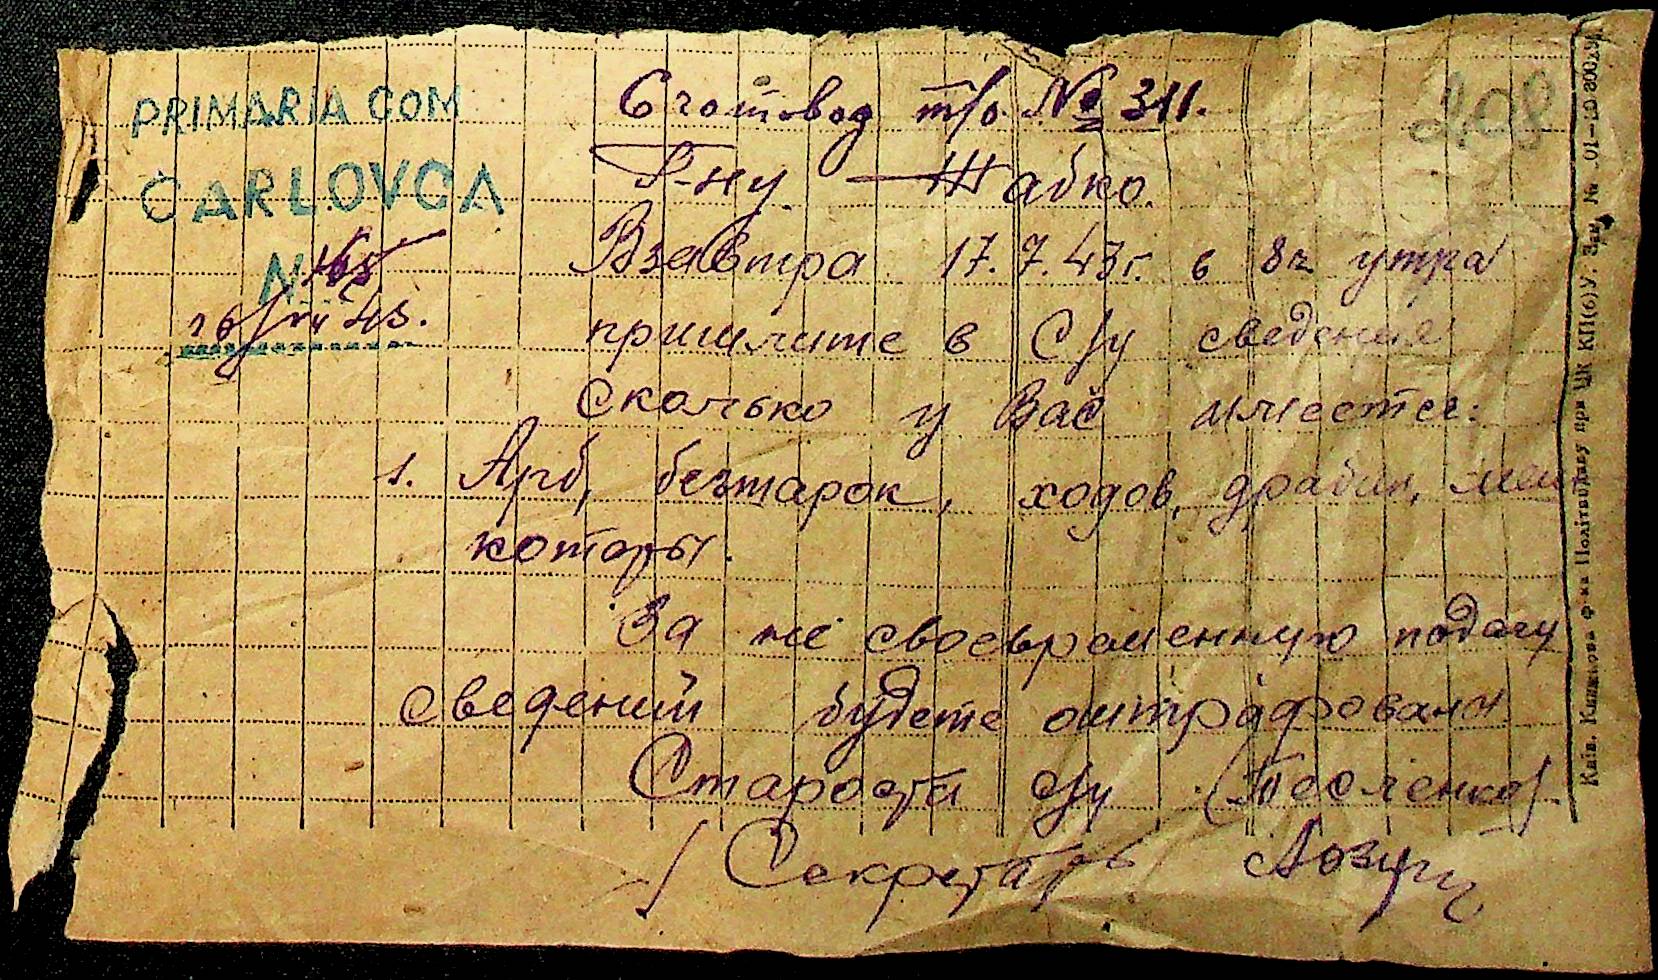 PRIMARIA COM
CARLOVCA
N 165
16/VII 43.
208
Счотовод т/о. № 311.
Г-ну Жабко.
Взавтра 17.7.43г. в 8ч утра
пришлите в С/у сведения
сколько у Вас имеется:
1. Арб, безтарок, ходов, драбин,
которы.
За не своевременную подачу
сведений будете оштрафованы
Староста С/у (Тесленко)
Секретарь
Київ. Книжкова ф-ка Політвидаву при ЦК КП(б)У. Зам. №